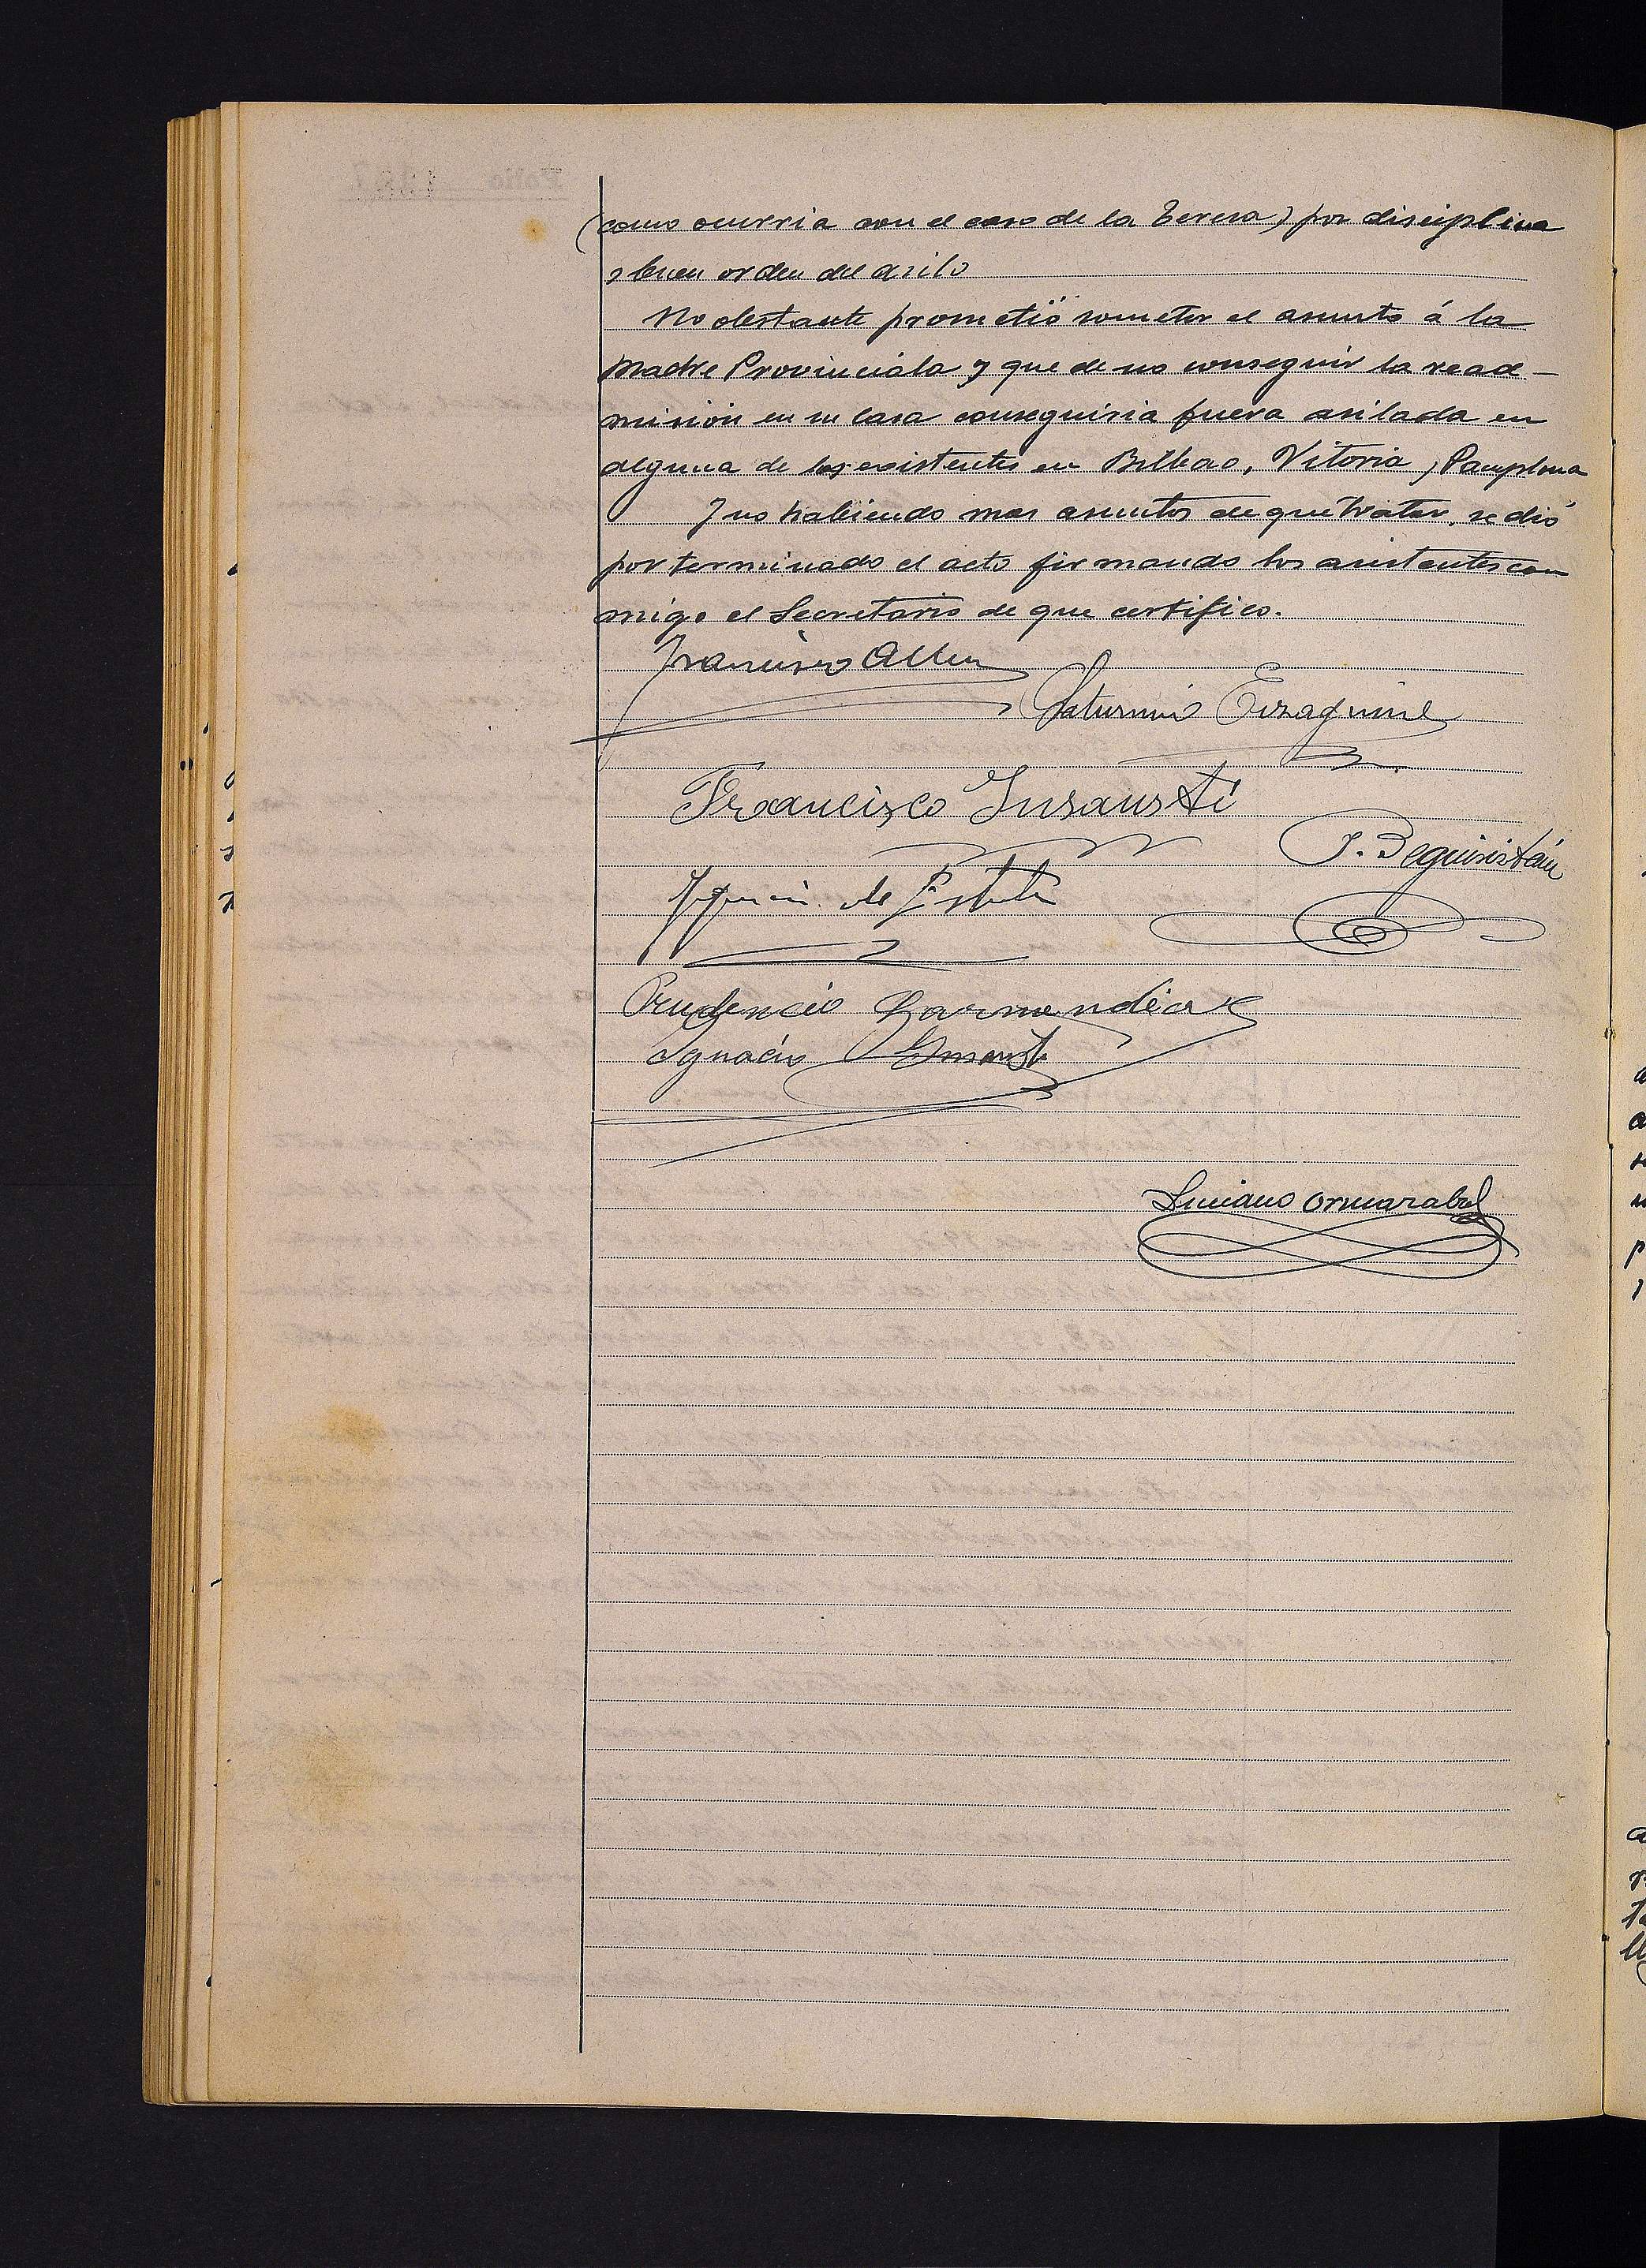 (como ocurria con el caso de la Teresa) por disciplina
y buen orden del asilo
No obstante prometió someter el asunto á la
Madre Provinciala y que de no conseguir la read-
misión en su casa conseguiria fuera asilada en
alguna de las existentes en Bilbao, Vitoria y Pamplona
Y no habiendo mas asuntos de que tratar, se dió
por terminado el acto firmando los asistentes con
migo el Secretario de que certifico.
Francisco
Saturnino Eizaguirre
Francisco Insausti
J. Beguiristáin
de
Prudencio Garmendia
Ignacio Insausti
Luciano Ormazabal